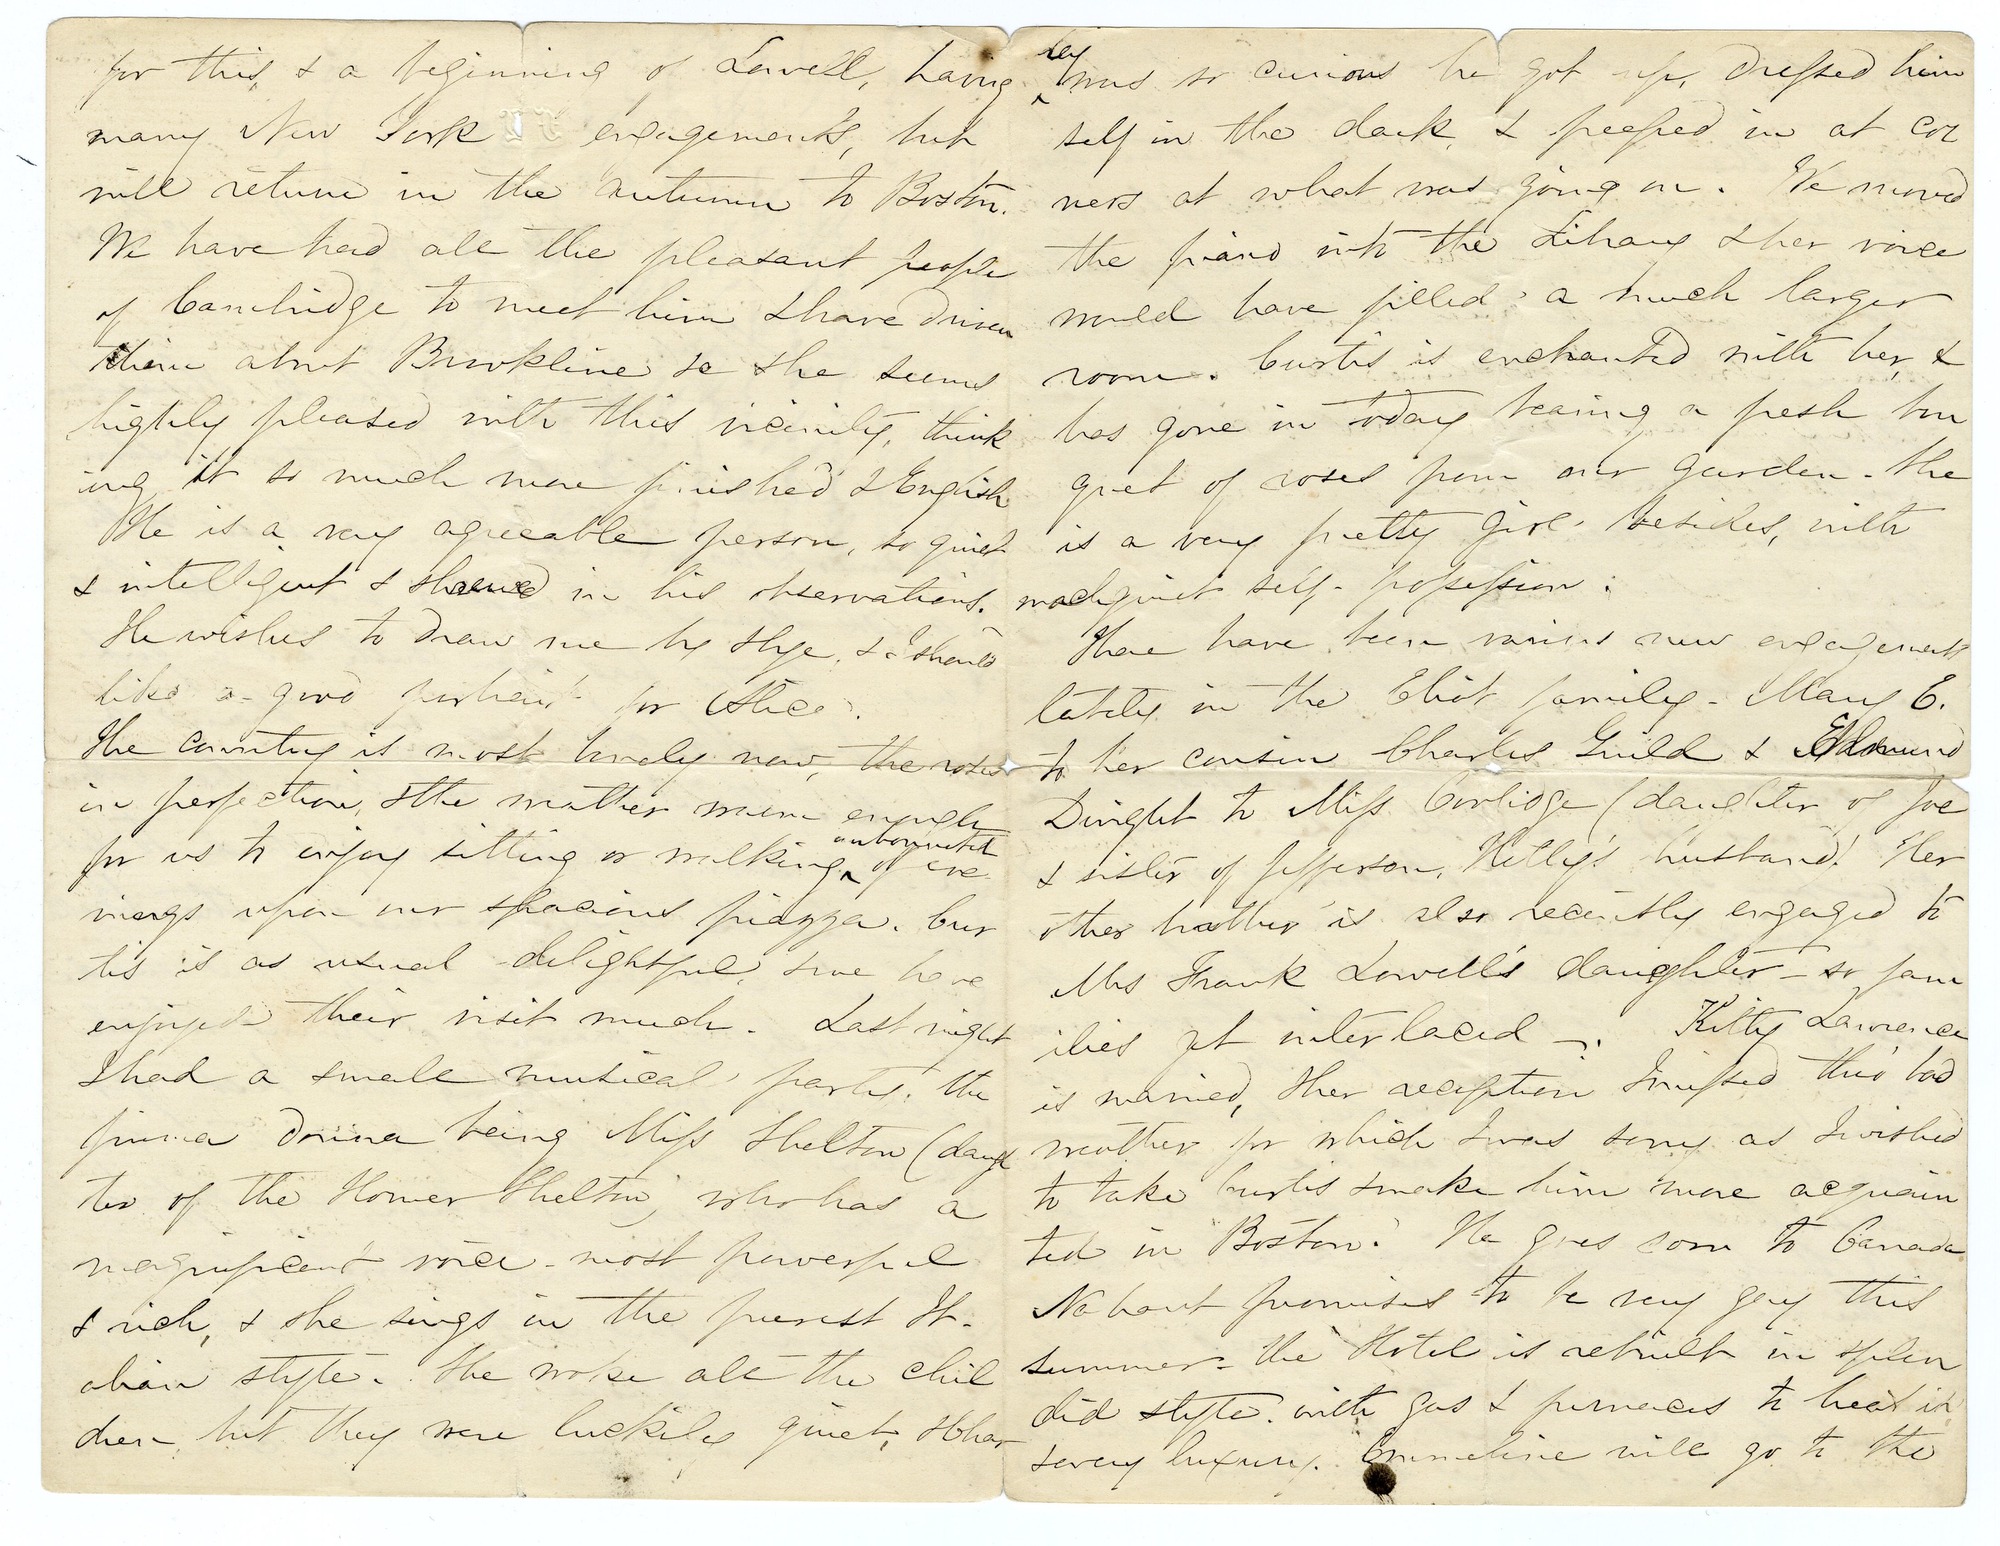 for this, & a beginning of Lowell, having
many New York engagements, but
will return in the autumn to Boston.
We have had all the pleasant people
of Cambridge to meet him & have driven
them about Brookline &c & he seems
highly pleased with this vicinity, think
ing it so much more finished & English
He is a very agreeable person, so quiet
& intelligent & shrewd in his observations.
He wishes to draw me by & bye, & I should
like a good portrait for Alice.
The country is most lovely now, the roses
in perfection, & the weather warm enough
for us to enjoy sitting or walking unbonneted of eve
nings upon our spacious piazza. Cur
tis is as usual delightful, & we have
enjoyed their visit much. Last night
I had a small musical party, the
prima donna being Miss Shelton (daugh
ter of the Homer Shelton) who has a
magnificent voice - most powerful
& rich, & she sings in the purest It-
alian style. She woke all the chil
dren, but they were luckily quiet, & Char
ley was so curious he got up, dressed him
self in the dark, & peeped in at cor
ners at what was going on. We moved
the piano into the Library & her voice
would have filled a much larger
room. Curtis is enchanted with her, &
has gone in today bearing a fresh bou
quet of roses from our garden. She
is a very pretty girl besides, with
much quiet self-possession.
There have been various new engagements
lately in the Eliot family - Mary E.
to her cousin Charles Guild & Edmund
Dwight to Miss Coolidge (daughter of Joe
& sister of Jefferson, Hetty's husband! Her
other brother is also recently engaged to
Mrs Frank Lowell's daughter - so fam
ilies get interlaced -. Kitty Lawrence
is married, & her reception I missed thro' bad
weather for which I was sorry as I wished
to take Curtis & make him more acquain
ted in Boston. He goes soon to Canada
Nahant promises to be very gay this
summer - the Hotel is rebuilt in splen
did style. with gas & furnaces to heat it
& every luxury. Emmeline will go to the